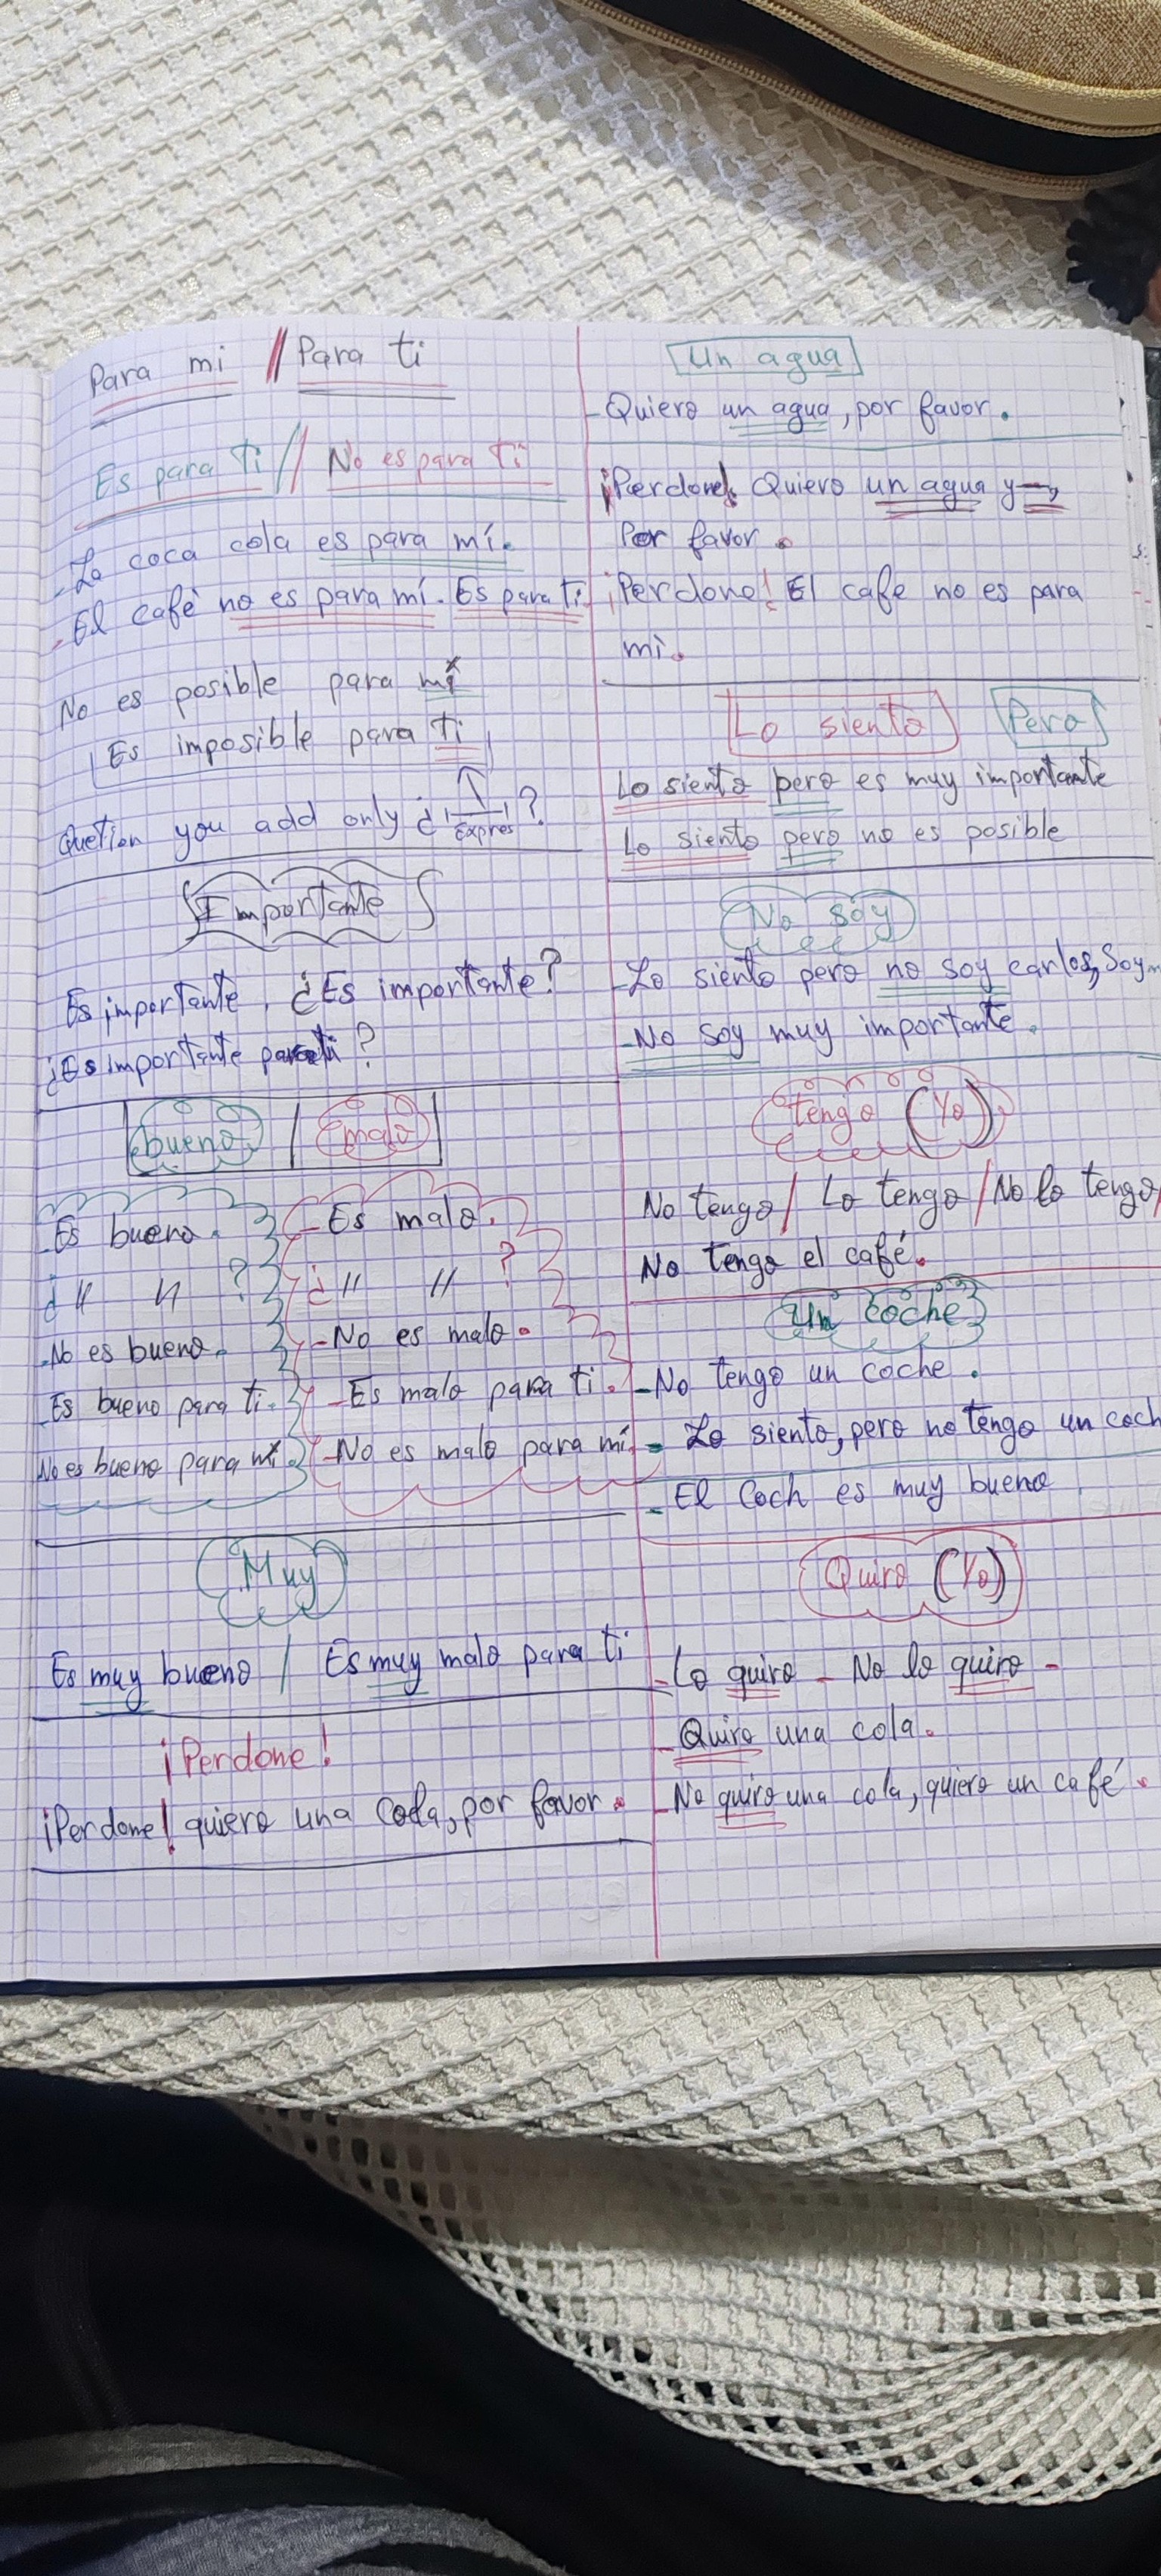 Para mi // Para ti
Es para Ti // No es para Ti
- La coca cola es para mí.
- El café no es para mí. Es para Ti
No es posible para mí
Es imposible para Ti
Quetion you add only ¿ Expres ?
Importante
Es importante, ¿Es importante?
¿Es importante para ti ?
bueno | malo
- Es bueno.
¿ " " ?
- No es bueno.
- Es bueno para ti.
No es bueno para mí.
- Es malo.
¿ " " ?
- No es malo.
- Es malo para ti.
- No es malo para mí
Muy
Es muy bueno / Es muy malo para ti
¡Perdone!
¡Perdone! quiero una Coda, por favor.
Un agua
- Quiero un agua, por favor.
¡Perdone! Quiero un agua y
Por favor.
¡Perdone! El cafe no es para
mi.
Lo siento Pero
Lo siento pero es muy importante
Lo siento pero no es posible
No soy
- Lo siento pero no soy carlos, Soy...
- No soy muy importante.
tengo (Yo)
No tengo / Lo tengo / No lo tengo /
No tengo el café.
Un coche
- No tengo un coche.
- Lo siento, pero no tengo un coch
- El Coch es muy bueno
Quiro (Yo)
- Lo quiro - No lo quiro -
- Quiro una cola.
- No quiro una cola, quiero un café.